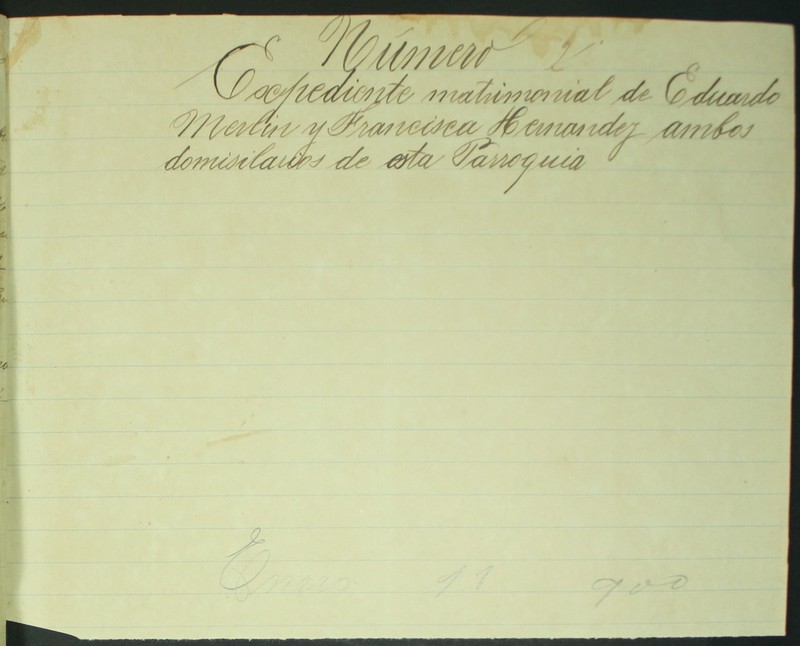 Número 2
Expediente matrimonial de Eduardo
Merlin y Francisca Hernandez ambos
domisilarios de esta Parroquia
Enero 11 900